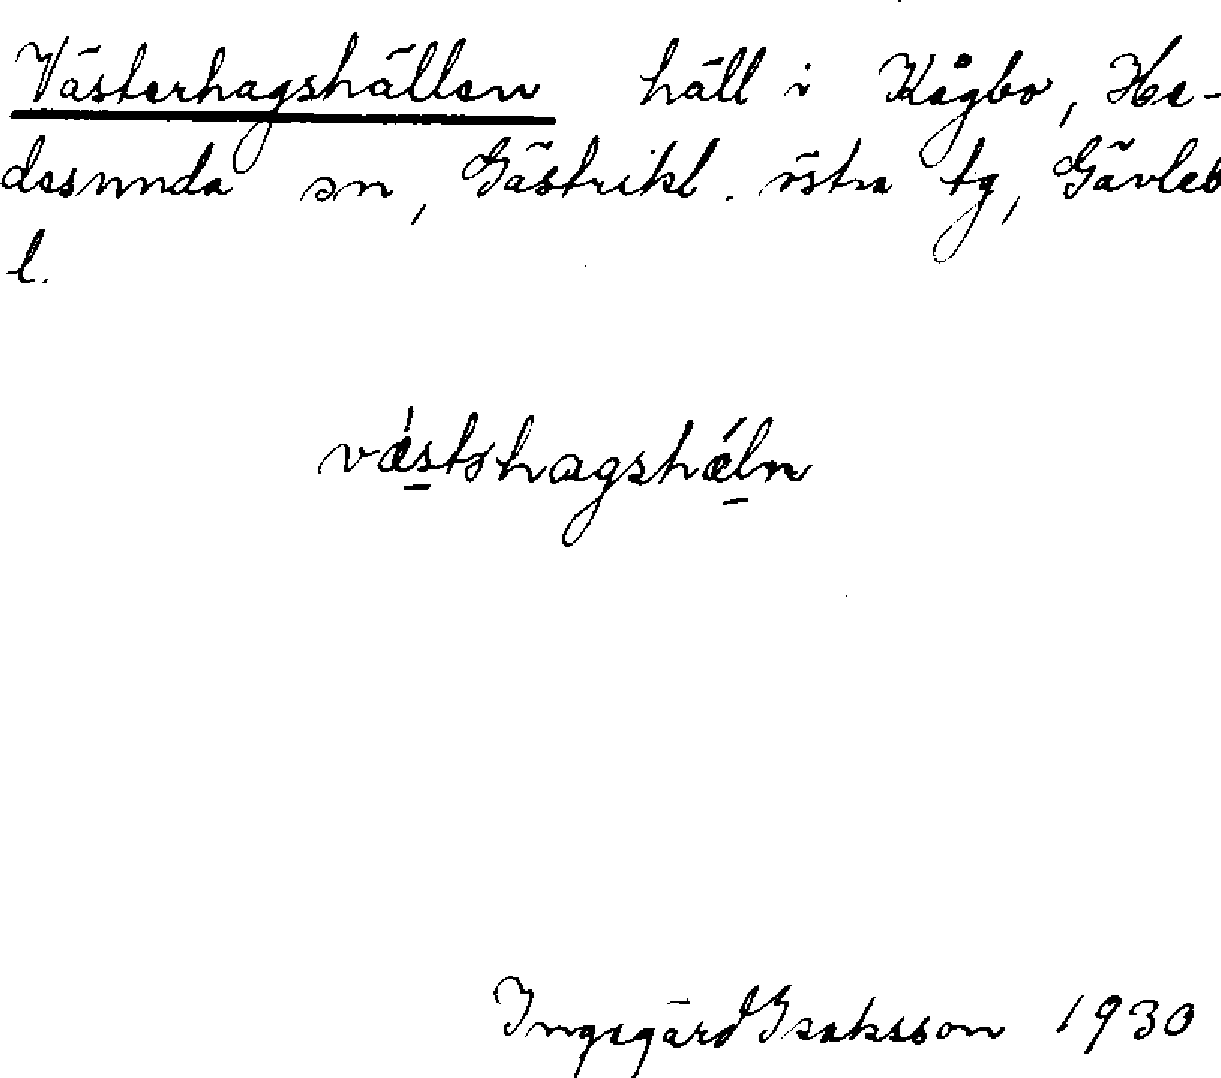 Västerhagshällen häll i Kågbo, He-
desunda sn, Gästrikl. östra tg, Gävleb
l.
vǽstəshagshǽln
Ingegärd Isaksson 1930